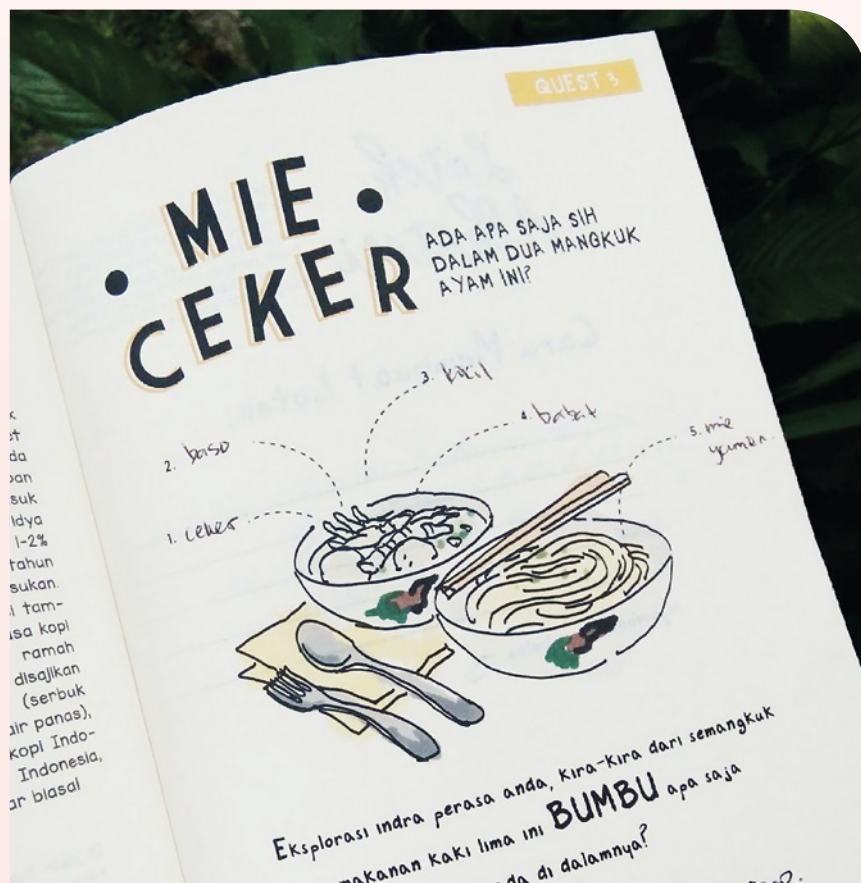 QUEST 3
• MIE •
• CEKER
ADA APA SAJA SIH
DALAM DUA MANGKUK
AYAM INI?
3. kikil
4. babat
5. mie
yamien.
2. baso
1. ceker
Eksplorasi indra perasa anda, kira-kira dari semangkuk
makanan kaki lima ini BUMBU apa saja
di dalamnya?
et
da
suk
1-2%
tahun
sukan.
tam-
kopi
ramah
disajikan
(serbuk
air panas),
kopi Indo-
Indonesia,
biasa!